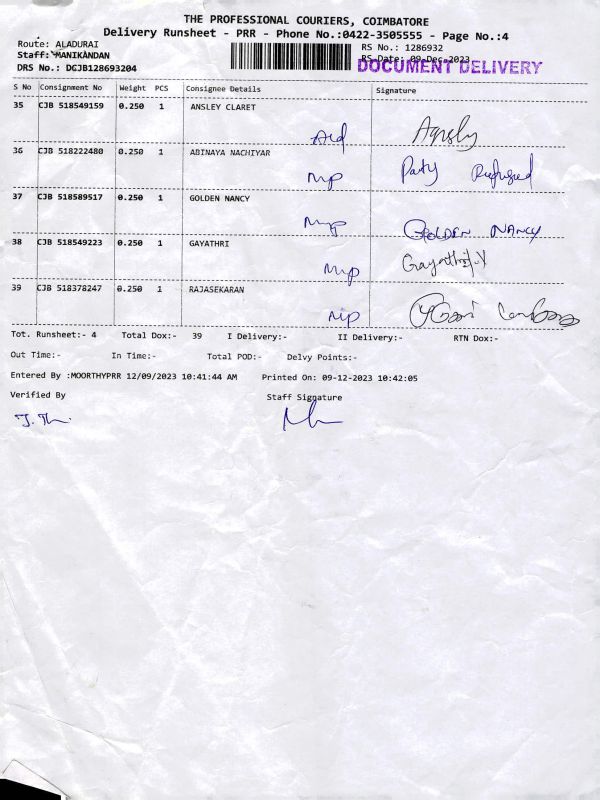 THE PROFESSIONAL COURIERS, COIMBATORE
Delivery Runsheet - PRR - Phone No.:0422-3505555 - Page No.:4
Route: ALADURAI
RS No.: 1286932
Staff: MANIKANDAN
RS Date: 09-Dec-2023
DOCUMENT DELIVERY
DRS No.: DCJB128693204
S No Consignment No Weight PCS Consignee Details Signature
35 CJB 518549159 0.250 1 ANSLEY CLARET
36 CJB 518222480 0.250 1 ABINAYA NACHIYAR
Party Refused
37 CJB 518589517 0.250 1 GOLDEN NANCY
GOLDEN NANCY
38 CJB 518549223 0.250 1 GAYATHRI
39 CJB 518378247 0.250 1 RAJASEKARAN
Tot. Runsheet:- 4 Total Dox:- 39 I Delivery:- II Delivery:- RTN Dox:-
Out Time:- In Time:- Total POD:- Delvy Points:-
Entered By :MOORTHYPRR 12/09/2023 10:41:44 AM Printed On: 09-12-2023 10:42:05
Verified By Staff Signature